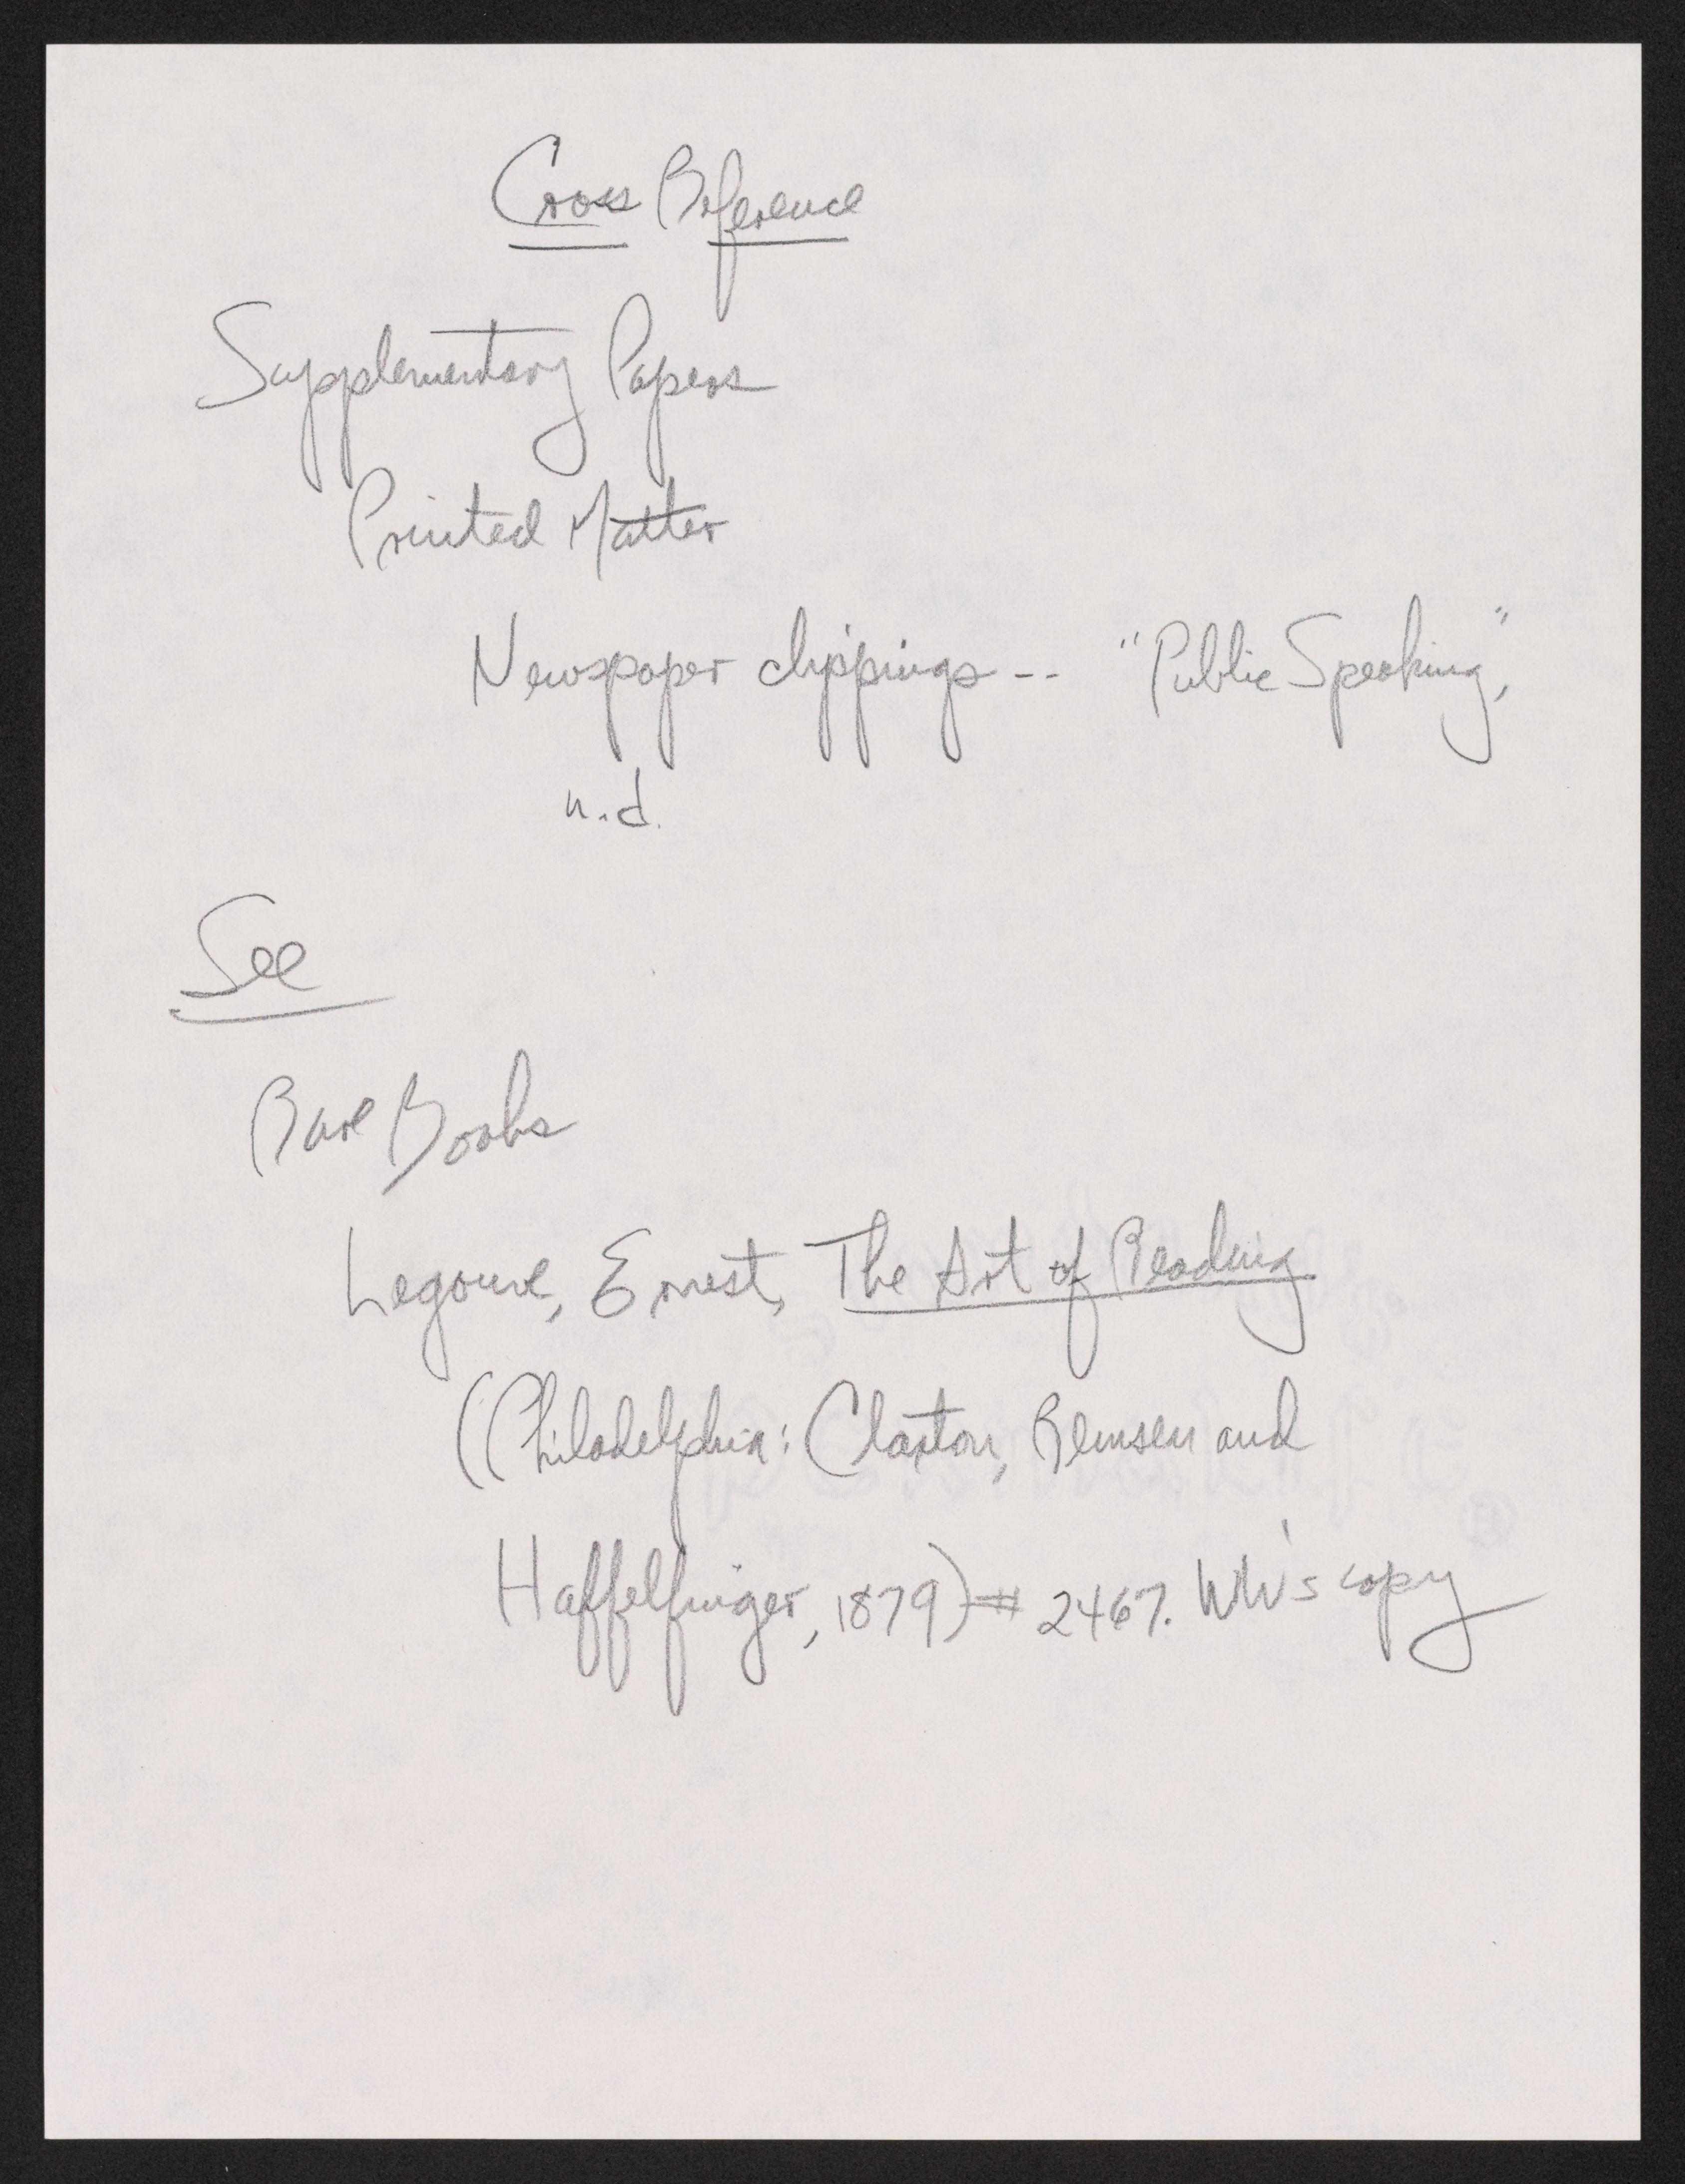 Cross Reference
Supplementary Papers
Printed Matter
Newspaper clippings -- "Public Speaking,"
n.d.
See
Rare Books
Legouve, Ernest, The Art of Reading
(Philadelphia: Claxton, Remsen and
Haffelfinger, 1879) # 2467. WW's copy